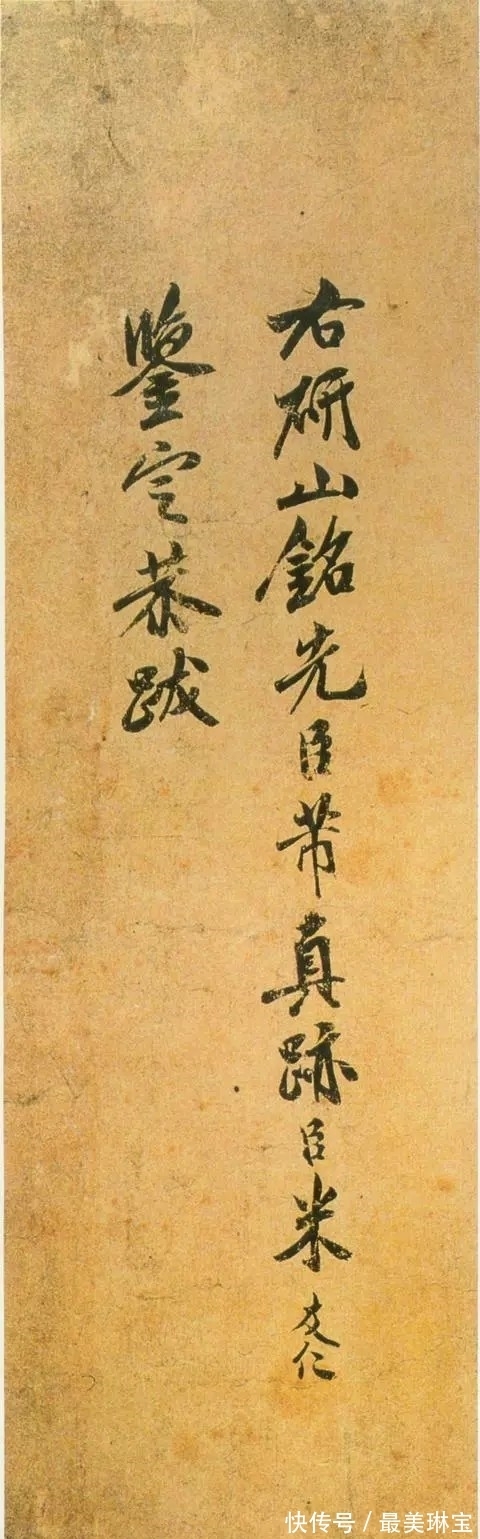 右研山銘先臣芾真跡臣米友仁
鑒定恭跋
快传号/最美琳宝